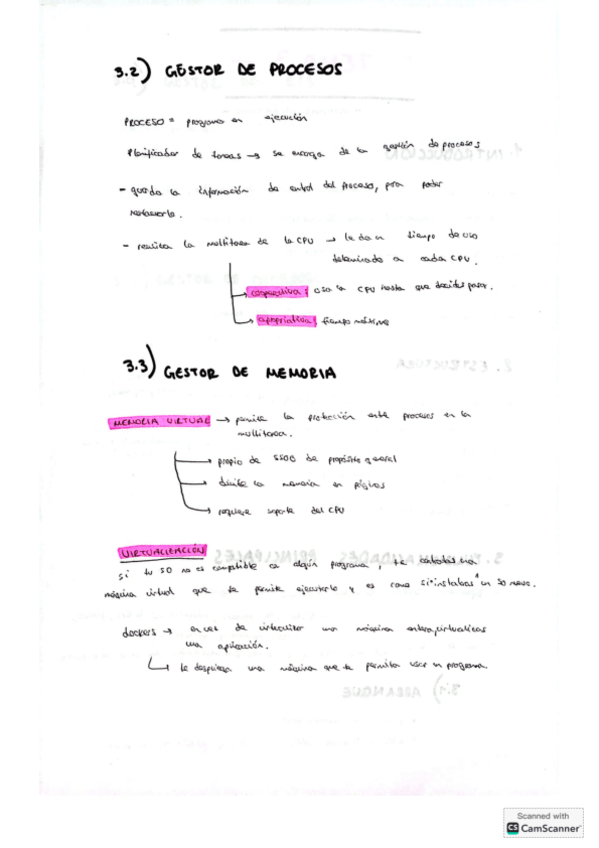 3.2) GESTOR DE PROCESOS
PROCESO = programa en ejecución
Planificador de tareas → se encarga de la gestión de procesos
- guarda la información de control del proceso, para poder
restaurarlo.
- realiza la multitarea de la CPU → le da un tiempo de uso
determinado a cada CPU.
cooperativa: usa la CPU hasta que decides parar.
apropiativa: tiempo máximo
3.3) GESTOR DE MEMORIA
MEMORIA VIRTUAL → permite la protección entre procesos en la
multitarea.
→ propio de SSOO de propósito general
→ divide la memoria en páginas
→ requiere soporte del CPU
VIRTUALIZACIÓN
si tu SO no es compatible con algún programa, te una
máquina virtual que te permite ejecutarlo y es como si instalabas un SO nuevo.
dockers → en vez de virtualizar una máquina entera, virtualizas
una aplicación.
te despliega una máquina que te permita usar un programa.
Scanned with
CS CamScanner